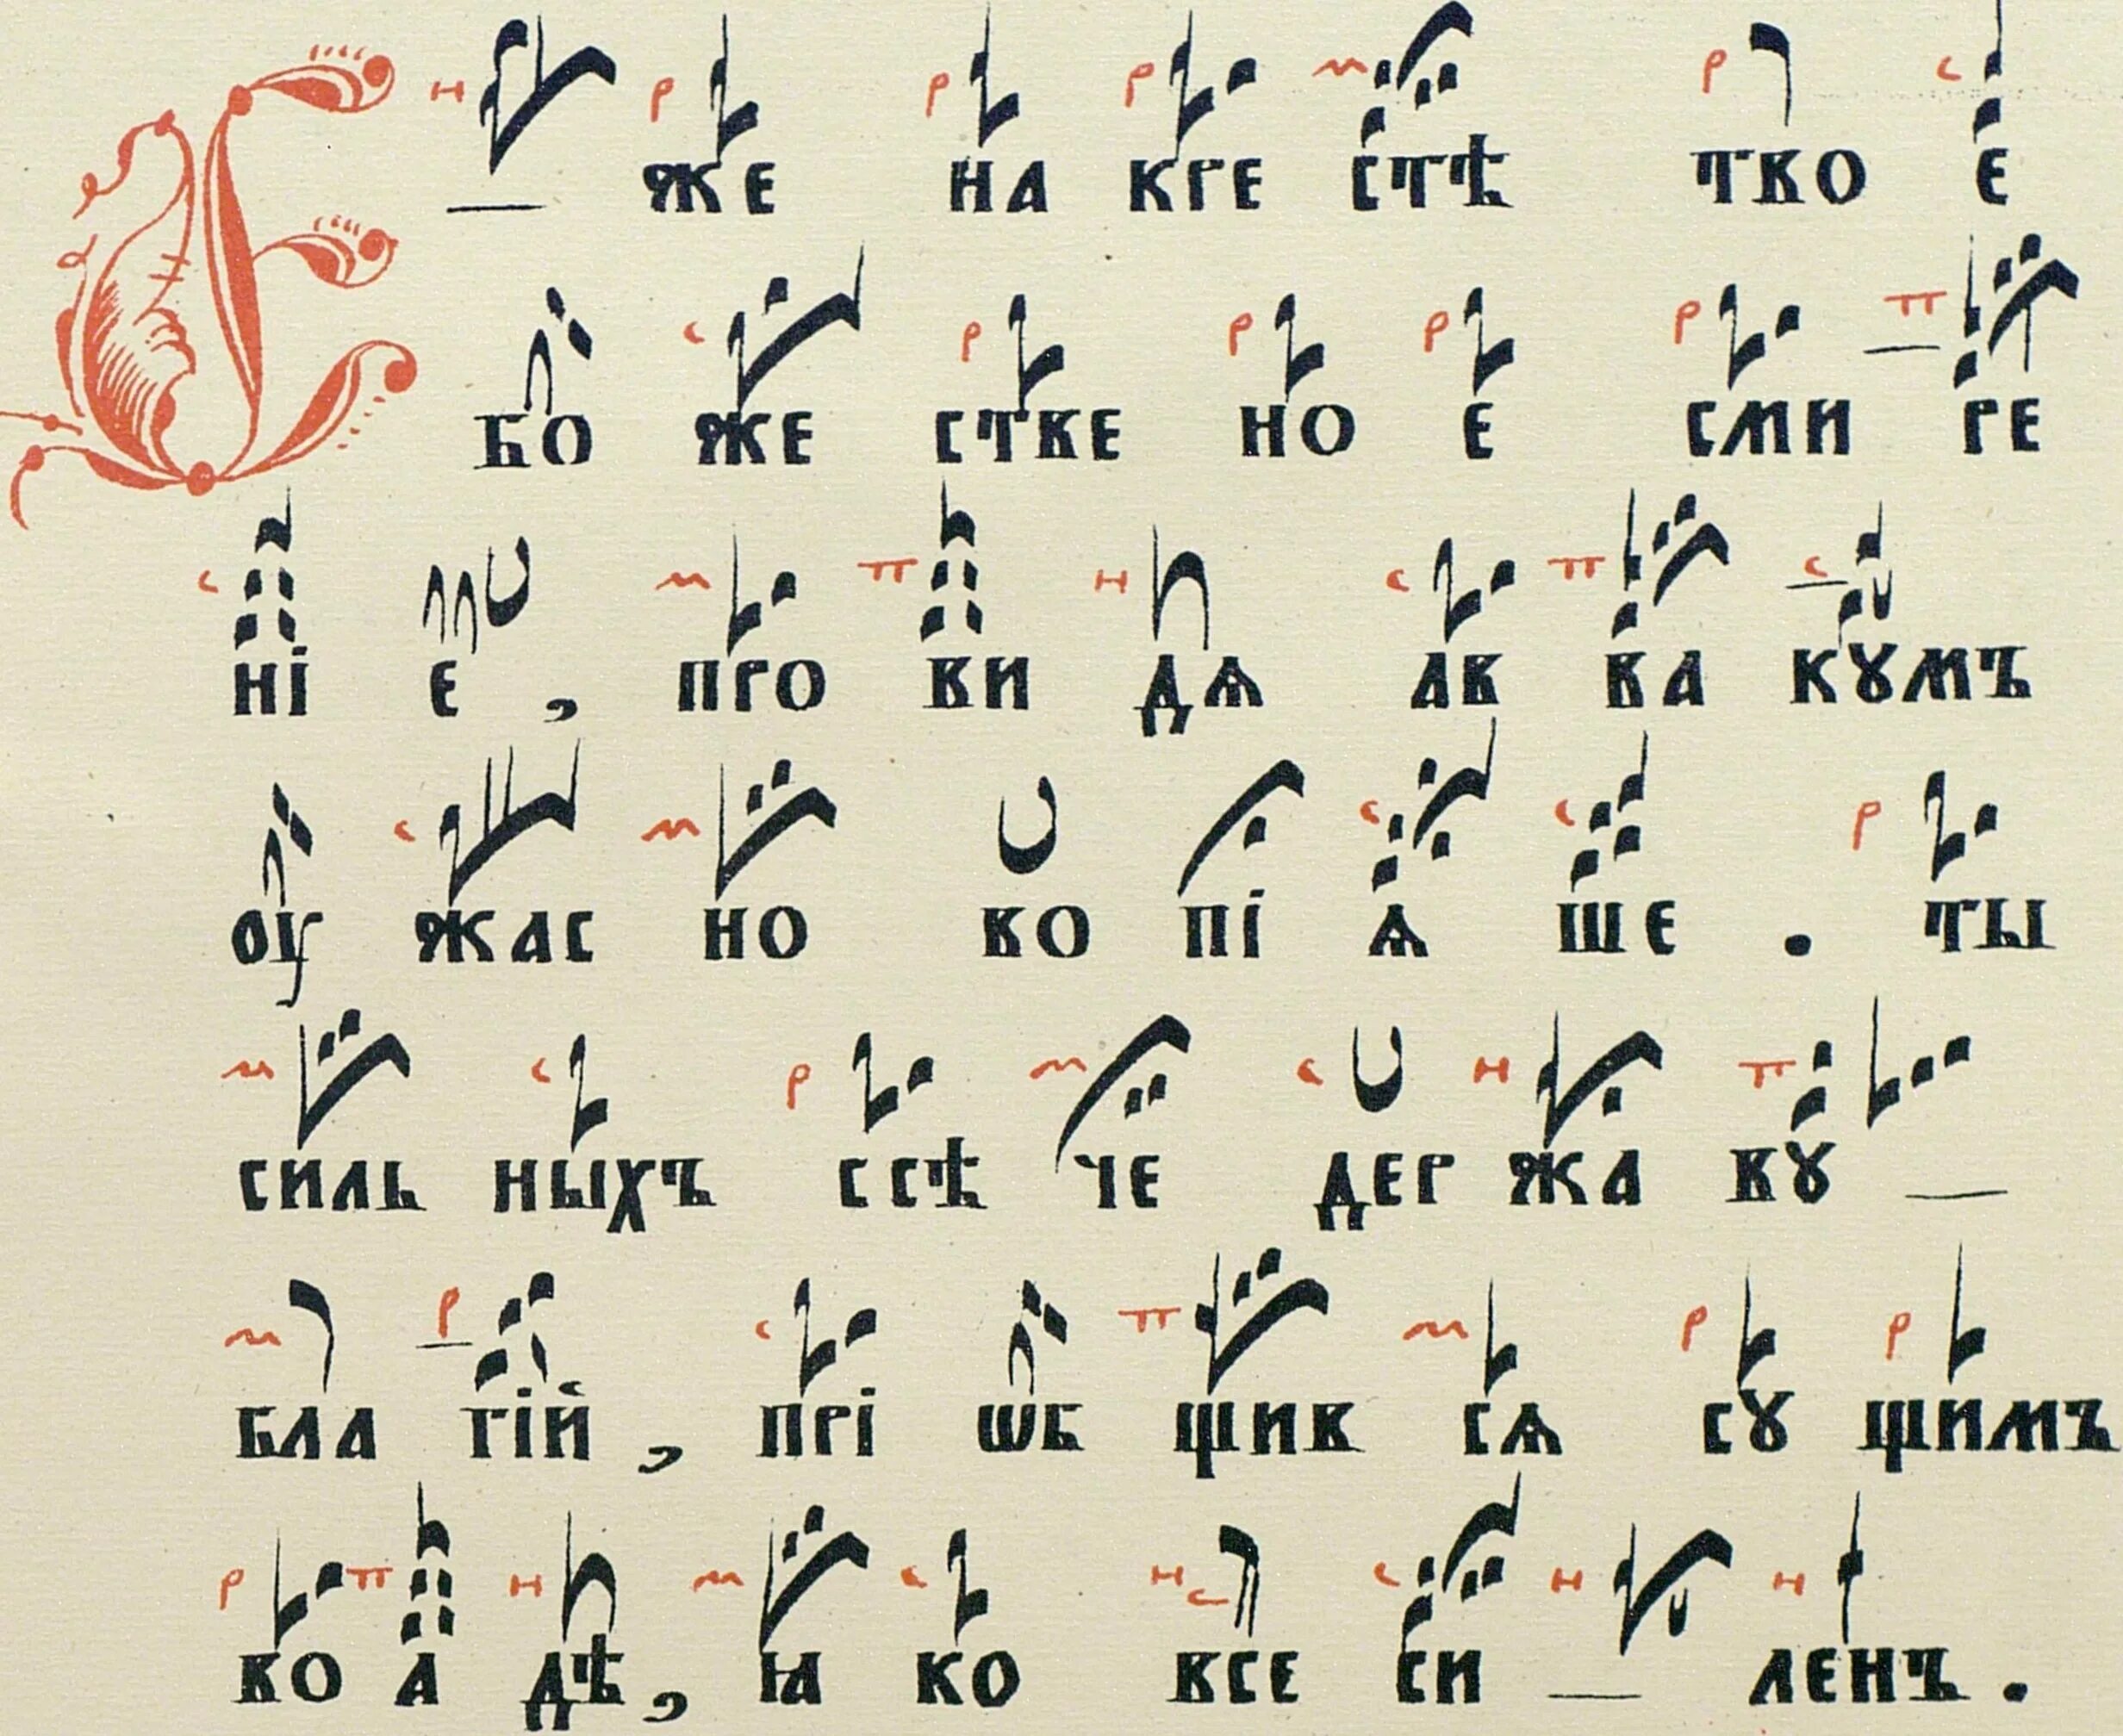 Е — же на кре стѣ тво е
бо же стве но е сми ре
ні е , про ви дѧ ав ва кꙋмъ
оу жас но во пі ѧ ше . ты
силь ныхъ ссѣ че дер жа вꙋ —
бла гій , прі ѡб щив сѧ сꙋ щимъ
во а дѣ , ꙗ ко все си — ленъ .